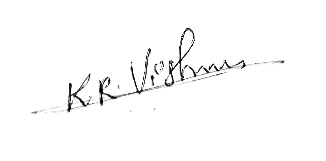 K.R. Vishnu